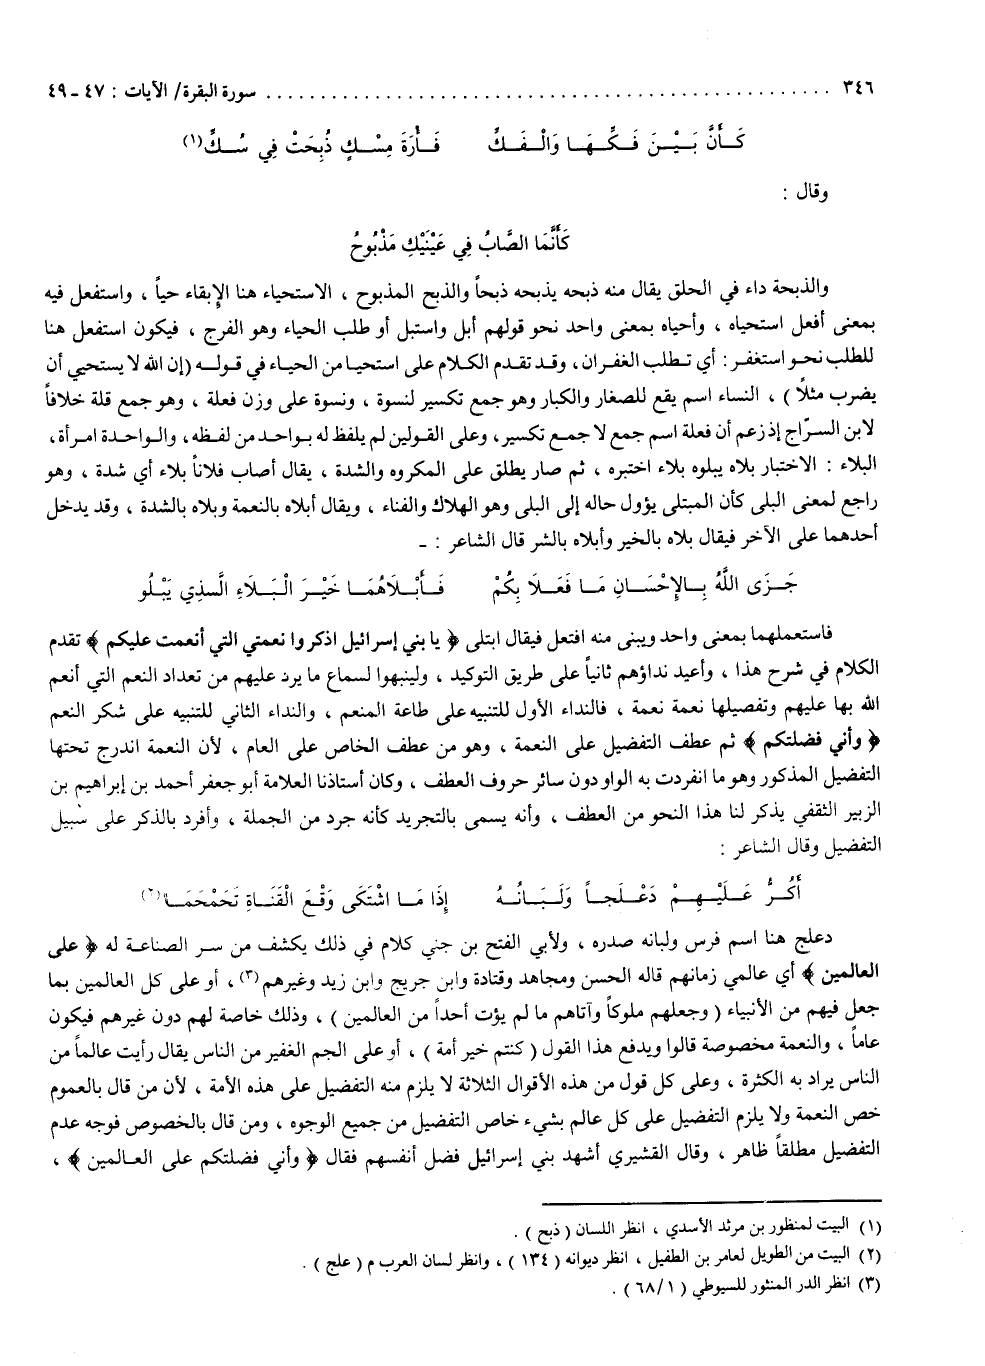 ٣٤٦ ........................................ سورة البقرة/ الآيات : ٤٧ - ٤٩
كَأَنَّ بَيْنَ فَكِّهَا وَالْفَكِّ فَأْرَةَ مِسْكٍ ذُبِحَتْ فِي سُكِّ(١)
وقال :
كَأَنَّمَا الصَّابُ فِي عَيْنَيْكِ مَذْبُوحُ
والذبحة داء في الحلق يقال منه ذبحه يذبحه ذبحاً والذبح المذبوح ، الاستحياء هنا الإبقاء حياً ، واستفعل فيه
بمعنى أفعل استحياه ، وأحياه بمعنى واحد نحو قولهم أبل واستبل أو طلب الحياء وهو الفرج ، فيكون استفعل هنا
للطلب نحو استغفر : أي تطلب الغفران ، وقد تقدم الكلام على استحيا من الحياء في قوله (إن الله لا يستحيي أن
يضرب مثلاً ) ، النساء اسم يقع للصغار والكبار وهو جمع تكسير لنسوة ، ونسوة على وزن فعلة ، وهو جمع قلة خلافاً
لابن السرّاج إذ زعم أن فعلة اسم جمع لا جمع تكسير، وعلى القولين لم يلفظ له بواحد من لفظه، والواحدة امرأة،
البلاء : الاختبار بلاه يبلوه بلاء اختبره ، ثم صار يطلق على المكروه والشدة ، يقال أصاب فلاناً بلاء أي شدة ، وهو
راجع لمعنى البلى كأن المبتلى يؤول حاله إلى البلى وهو الهلاك والفناء ، ويقال أبلاه بالنعمة وبلاه بالشدة ، وقد يدخل
أحدهما على الآخر فيقال بلاه بالخير وأبلاه بالشر قال الشاعر : ـ
جَزَى اللَّهُ بِالإِحْسَانِ مَا فَعَلَا بِكُمْ فَأَبْلَاهُمَا خَيْرَ الْبَلَاءِ الَّذِي يَبْلُو
فاستعملهما بمعنى واحد ويبنى منه افتعل فيقال ابتلى ﴿ يا بني إسرائيل اذكروا نعمتي التي أنعمت عليكم ﴾ تقدم
الكلام في شرح هذا ، وأعيد نداؤهم ثانياً على طريق التوكيد ، ولينبهوا لسماع ما يرد عليهم من تعداد النعم التي أنعم
الله بها عليهم وتفصيلها نعمة نعمة ، فالنداء الأول للتنبيه على طاعة المنعم ، والنداء الثاني للتنبيه على شكر النعم
﴿ وأني فضلتكم ﴾ ثم عطف التفضيل على النعمة ، وهو من عطف الخاص على العام ، لأن النعمة اندرج تحتها
التفضيل المذكور وهو ما انفردت به الواو دون سائر حروف العطف ، وكان أستاذنا العلامة أبو جعفر أحمد بن إبراهيم بن
الزبير الثقفي يذكر لنا هذا النحو من العطف ، وأنه يسمى بالتجريد كأنه جرد من الجملة ، وأفرد بالذكر على سبيل
التفضيل وقال الشاعر :
أَكُرُّ عَلَيْهِمْ دَعْلَجاً وَلَبَانُهُ إِذَا مَا اشْتَكَى وَقْعَ الْقَنَاةِ تَحَمْحَمَا(٢)
دعلج هنا اسم فرس ولبانه صدره ، ولأبي الفتح بن جني كلام في ذلك يكشف من سر الصناعة له ﴿ على
العالمين ﴾ أي عالمي زمانهم قاله الحسن ومجاهد وقتادة وابن جريج وابن زيد وغيرهم(٣) ، أو على كل العالمين بما
جعل فيهم من الأنبياء ( وجعلهم ملوكاً وآتاهم ما لم يؤت أحداً من العالمين ) ، وذلك خاصة لهم دون غيرهم فيكون
عاماً ، والنعمة مخصوصة قالوا ويدفع هذا القول ( كنتم خير أمة ) ، أو على الجم الغفير من الناس يقال رأيت عالماً من
الناس يراد به الكثرة ، وعلى كل قول من هذه الأقوال الثلاثة لا يلزم منه التفضيل على هذه الأمة ، لأن من قال بالعموم
خص النعمة ولا يلزم التفضيل على كل عالم بشيء خاص التفضيل من جميع الوجوه ، ومن قال بالخصوص فوجه عدم
التفضيل مطلقاً ظاهر ، وقال القشيري أشهد بني إسرائيل فضل أنفسهم فقال ﴿ وأني فضلتكم على العالمين ﴾ ،
(١) البيت لمنظور بن مرثد الأسدي ، انظر اللسان ( ذبح ) .
(٢) البيت من الطويل لعامر بن الطفيل ، انظر ديوانه ( ١٣٤ ) ، وانظر لسان العرب م ( علج ) .
(٣) انظر الدر المنثور للسيوطي ( ٦٨/١ ) .